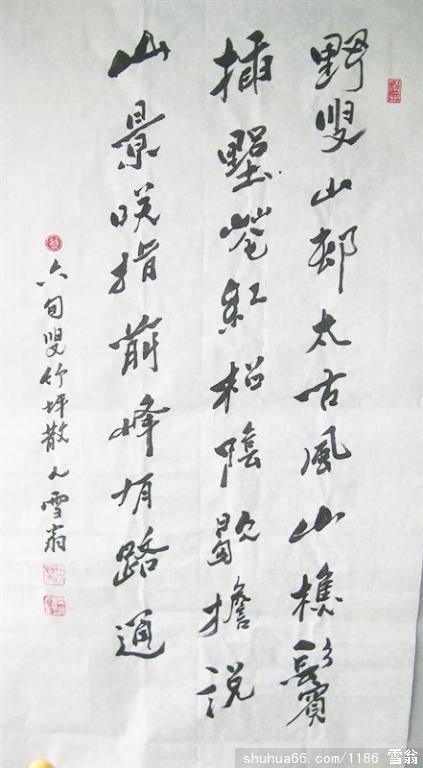 野叟山邨太古風山樵鬢
插墅花紅松陰歇擔說
山景咲指前峰有路通
六旬叟竹坪散人雪翁
shuhua66.com/1186 雪翁